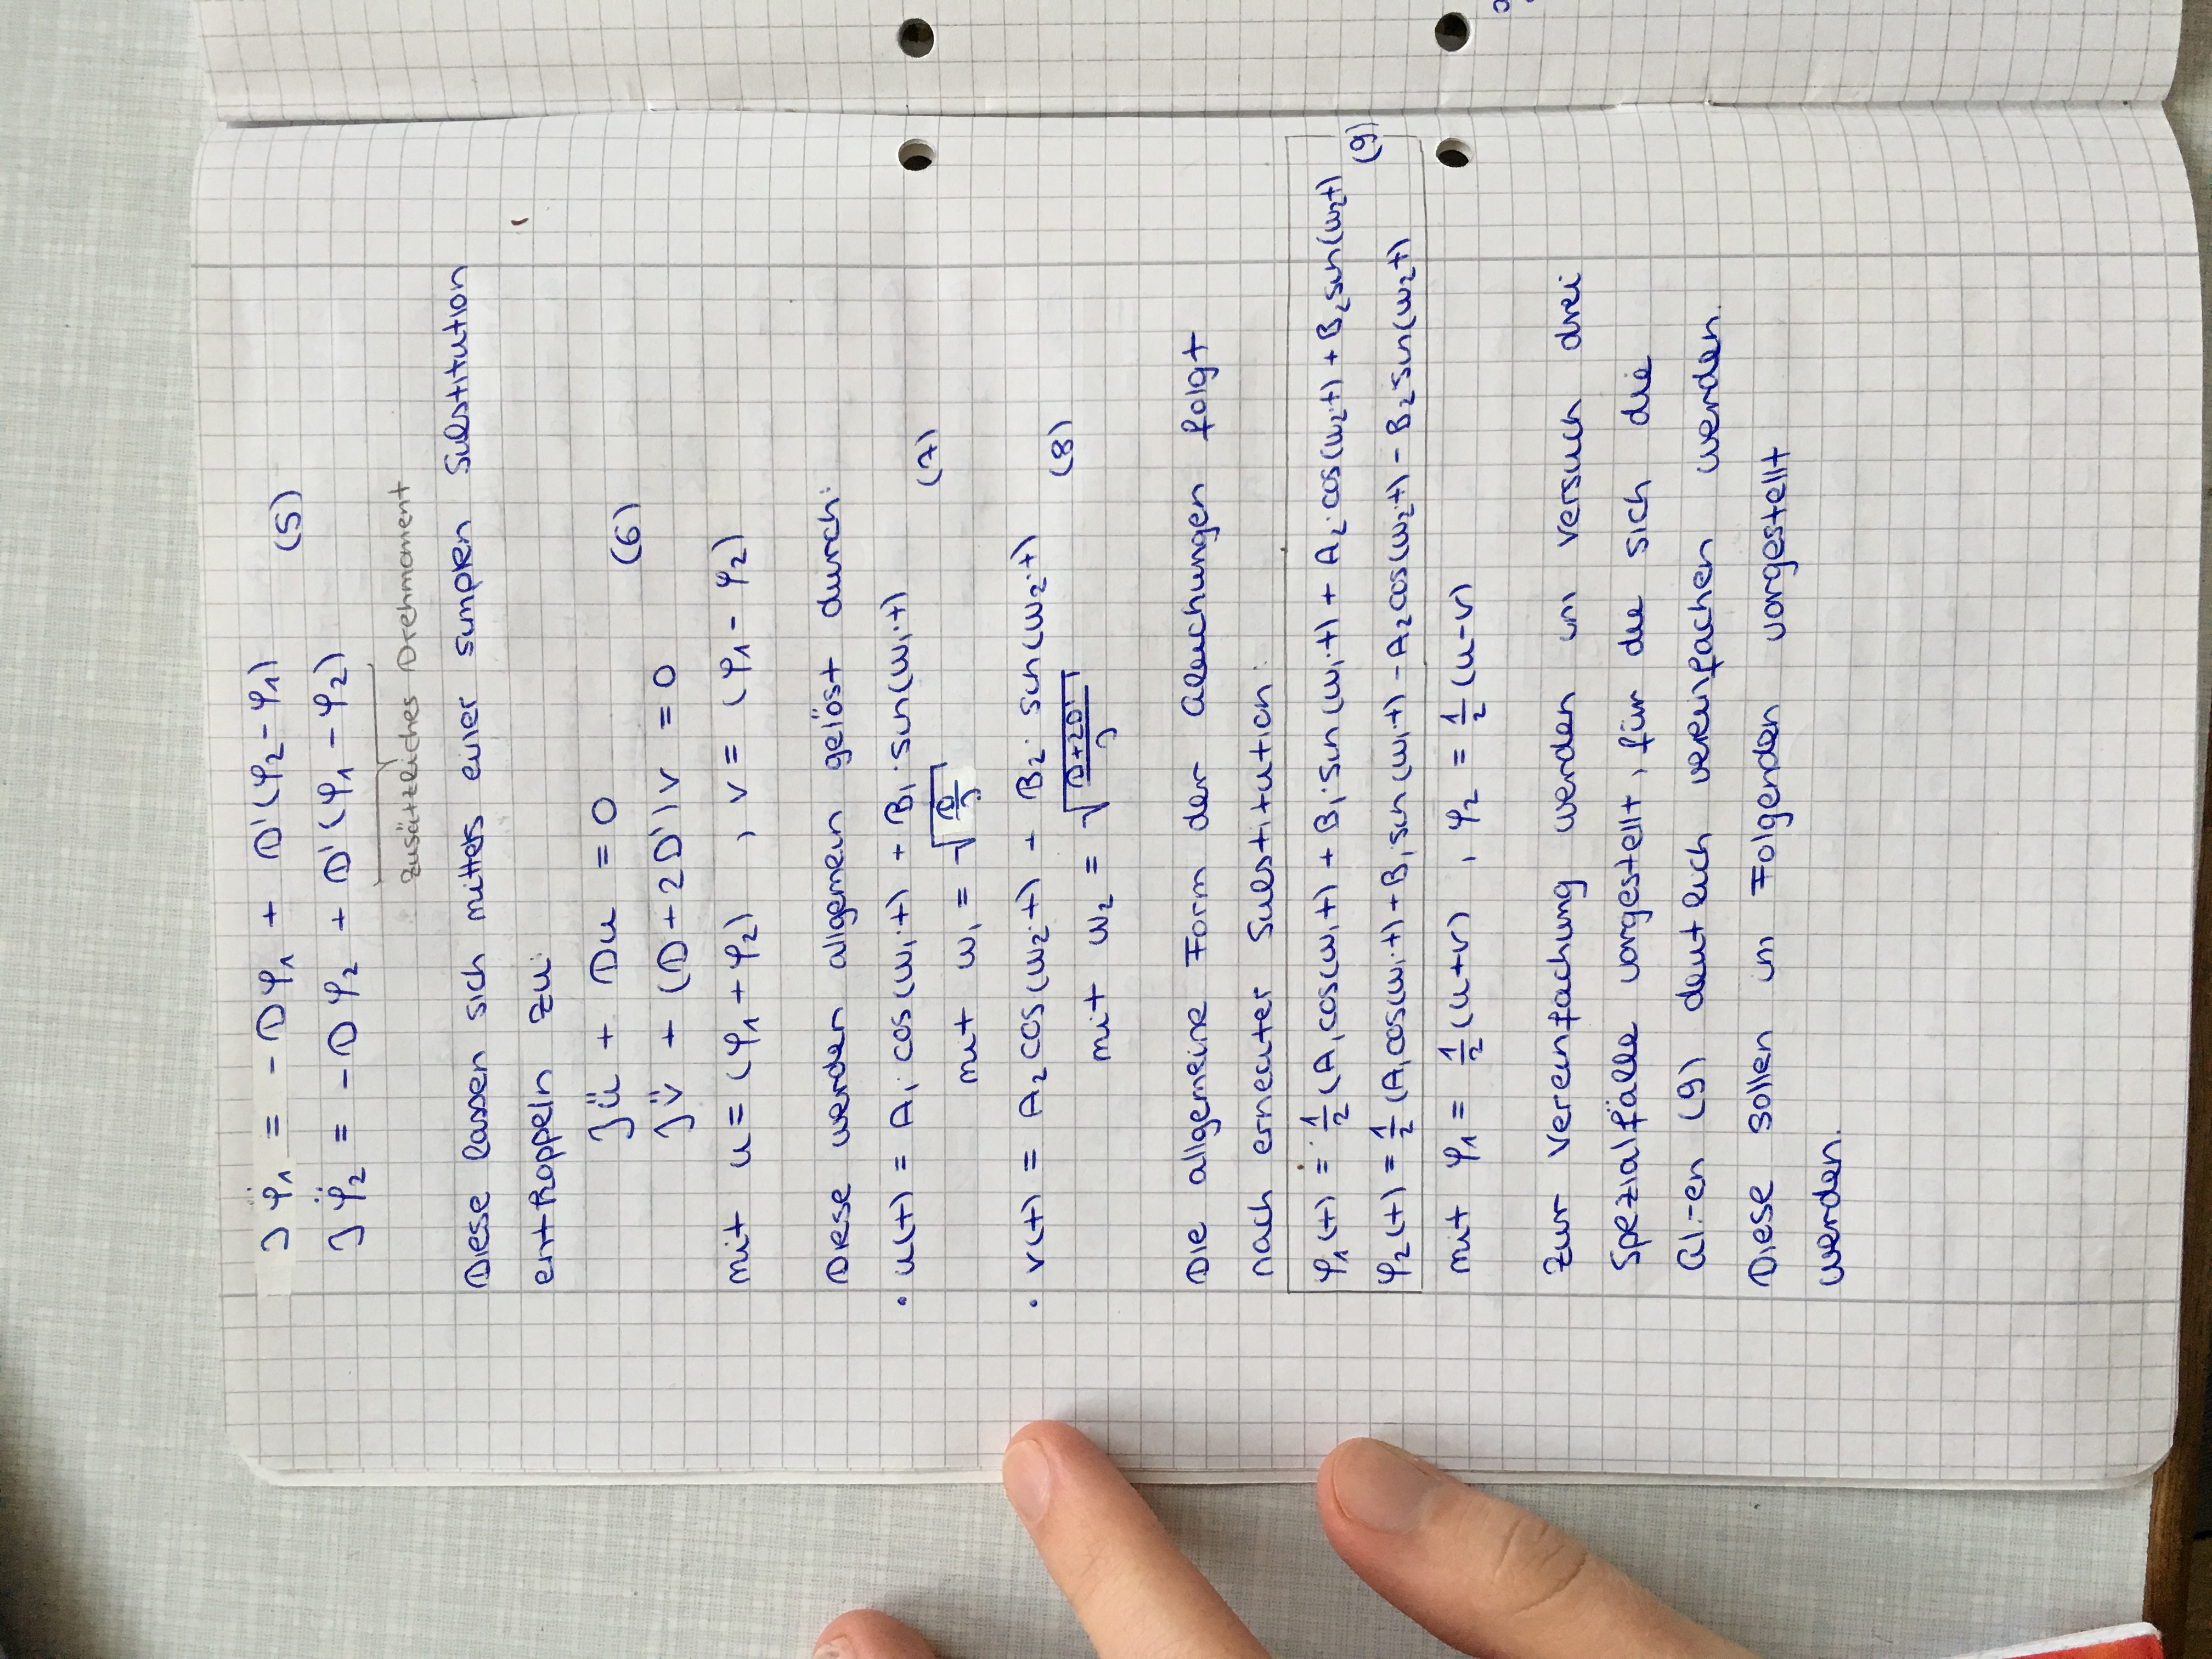 J φ̈₁ = - Dφ₁ + D'(φ₂ - φ₁)
(5)
J φ̈₂ = - D φ₂ + D'(φ₁ - φ₂)
zusätzliches Drehmoment
Diese lassen sich mittels einer simplen Substitution
entkoppeln zu:
Jü + Du = 0
(6)
Jv̈ + (D + 2D')v = 0
mit u = (φ₁ + φ₂) , v = (φ₁ - φ₂)
Diese werden allgemein gelöst durch:
• u(t) = A₁ · cos(ω₁·t) + B₁ · sin(ω₁·t)
(7)
mit ω₁ = √(D/J)
• v(t) = A₂ cos(ω₂·t) + B₂ · sin(ω₂·t)
(8)
mit ω₂ = √((D+2D')/J)
Die allgemeine Form der Gleichungen folgt
nach erneuter Substitution:
φ₁(t) = ½ (A₁cos(ω₁t) + B₁·sin(ω₁·t) + A₂·cos(ω₂·t) + B₂sin(ω₂t)
(9)
φ₂(t) = ½ (A₁cos(ω₁·t) + B₁sin(ω₁·t) - A₂cos(ω₂·t) - B₂sin(ω₂t)
mit φ₁ = ½ (u+v) , φ₂ = ½ (u-v)
Zur Vereinfachung werden im Versuch drei
Spezialfälle vorgestellt, für die sich die
Gl.-en (9) deutlich vereinfachen werden.
Diese sollen im Folgenden vorgestellt
werden.